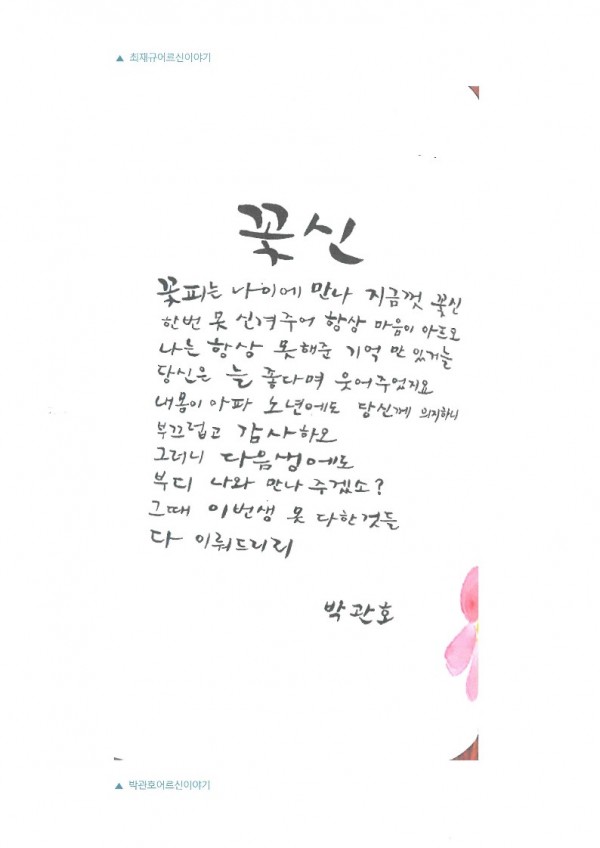 ▲ 최재규어르신이야기
꽃신
꽃피는 나이에 만나 지금껏 꽃신
한번 못 신겨주어 항상 마음이 아프오
나는 항상 못해준 기억 만 있거늘
당신은 늘 좋다며 웃어주었지요
내몸이 아파 노년에도 당신께 의지하니
부끄럽고 감사하오
그러니 다음생에도
부디 나와 만나 주겠소?
그때 이번생 못 다한것들
다 이뤄드리리
박관호
▲ 박관호어르신이야기